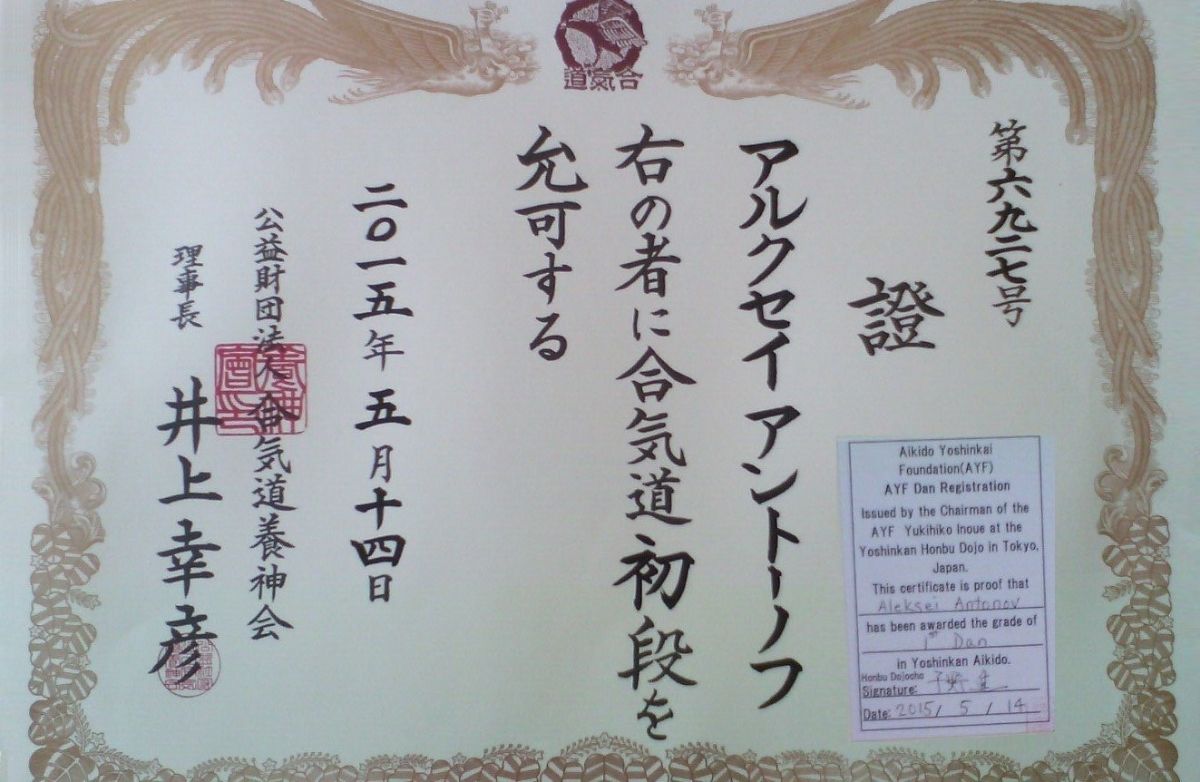 道氣合
第六九二七号
證
アルクセイ アントーノフ
右の者に合気道初段を
允可する
二〇一五年五月十四日
公益財団法人合気道養神会
理事長 井上幸彦
Aikido Yoshinkai
Foundation(AYF)
AYF Dan Registration
Issued by the Chairman of the
AYF Yukihiko Inoue at the
Yoshinkan Honbu Dojo in Tokyo,
Japan.
This certificate is proof that
Aleksei Antonov
has been awarded the grade of
1st Dan
in Yoshinkan Aikido.
Honbu Dojocho
Signature:
Date: 2015/ 5 / 14